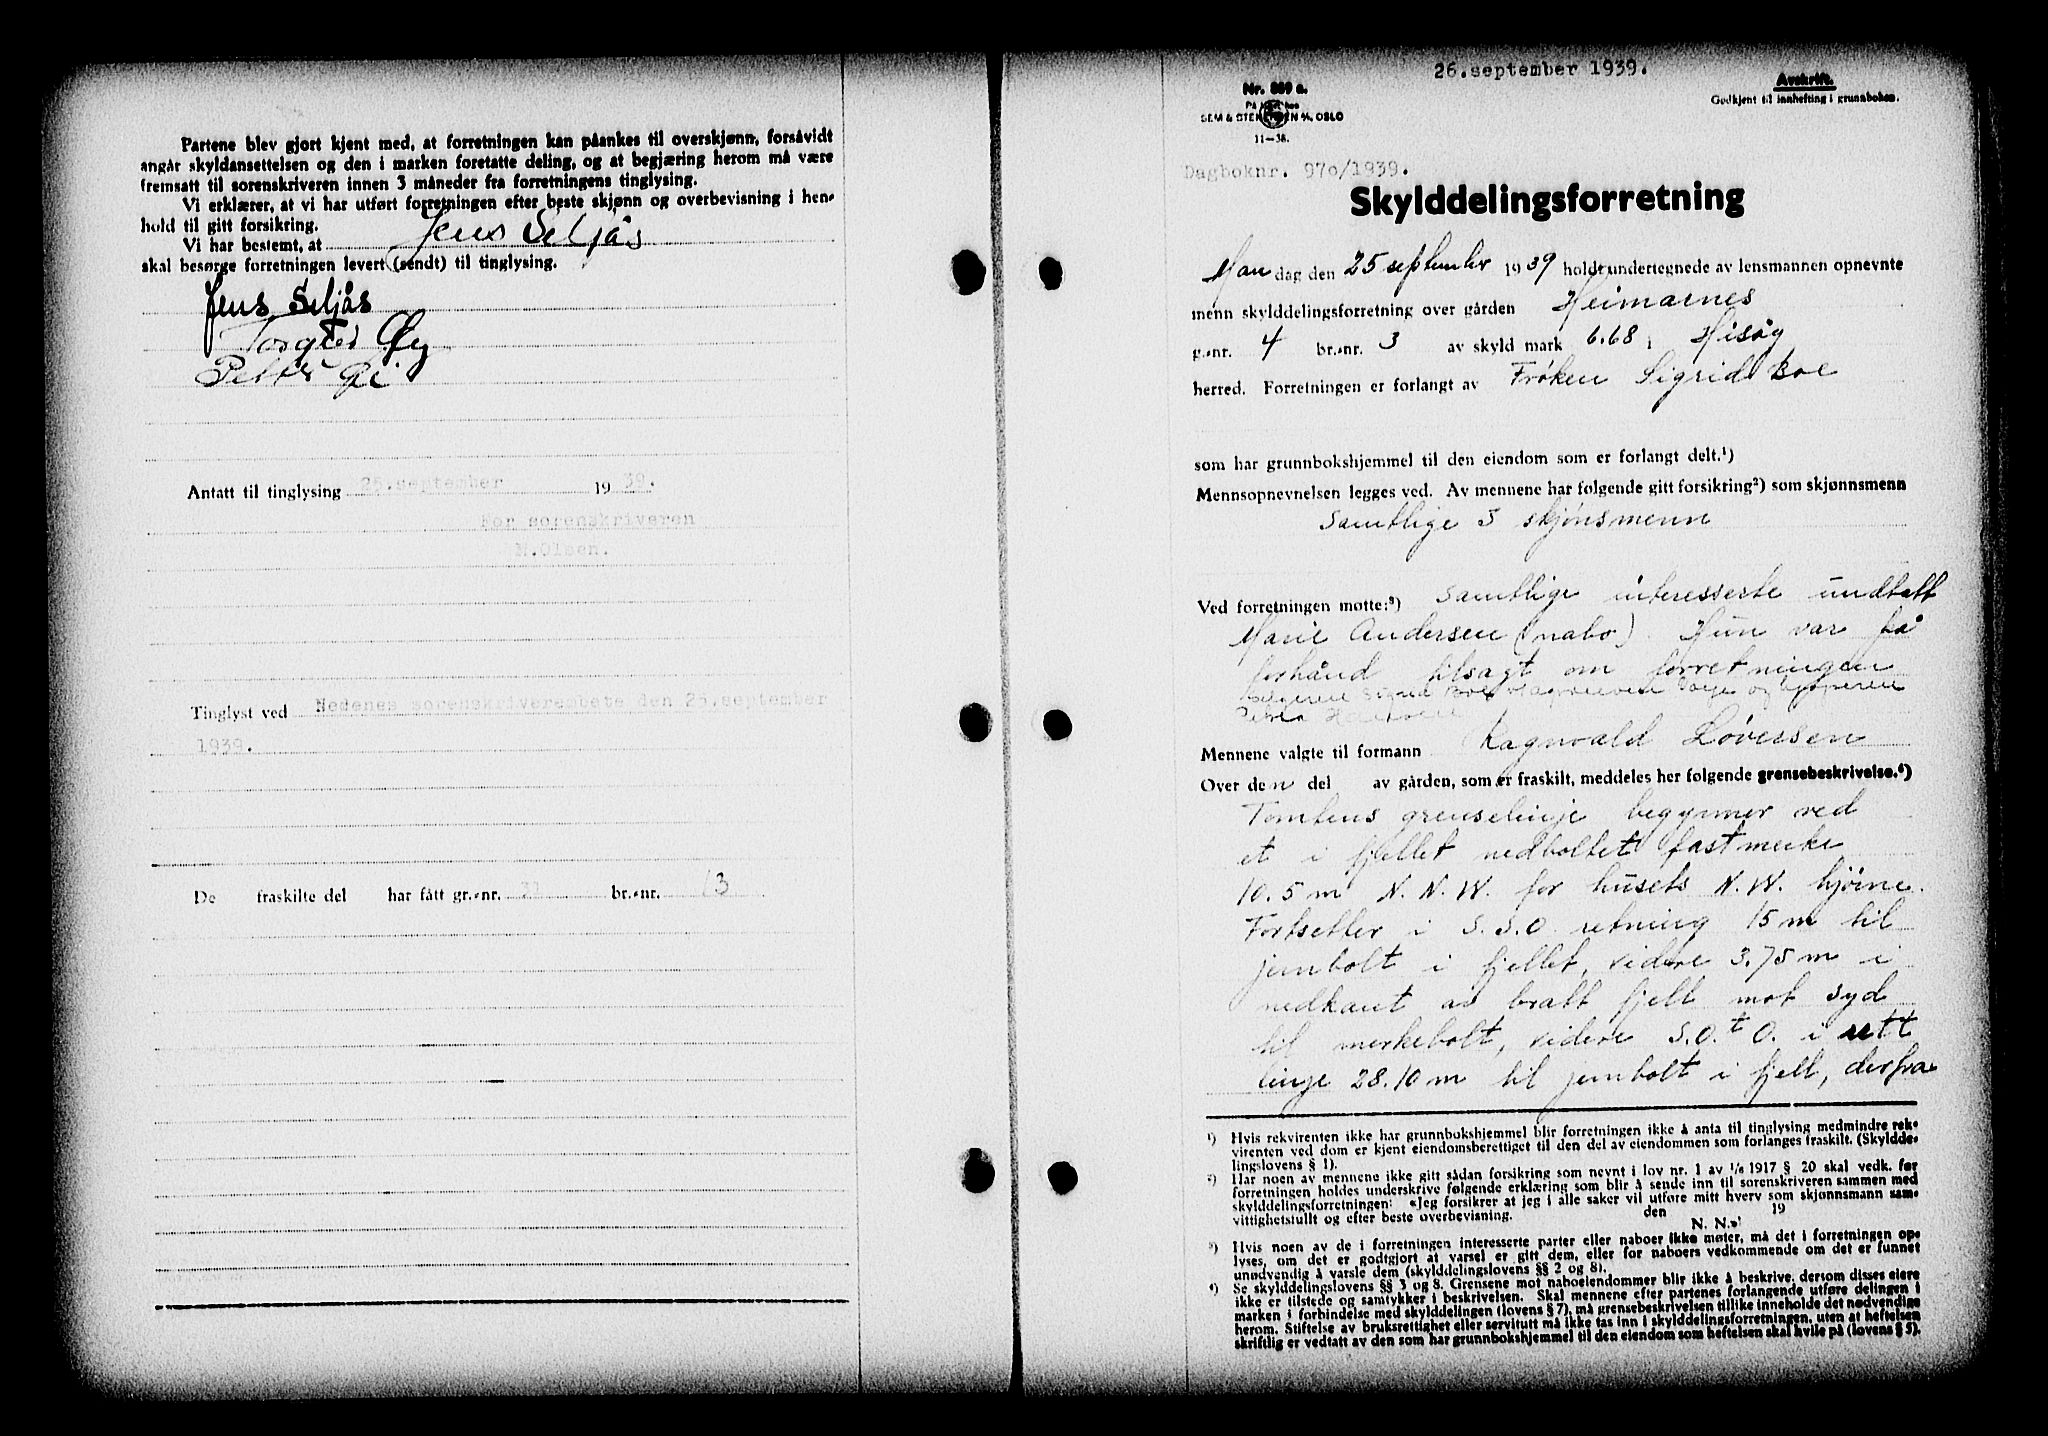 Partene blev gjort kjent med, at forretningen kan påankes til overskjønn, forsåvidt
angår skyldansettelsen og den i marken foretatte deling, og at begjæring herom må være
fremsatt til sorenskriveren innen 3 måneder fra forretningens tinglysing.
Vi erklærer, at vi har utført forretningen efter beste skjønn og overbevisning i hen-
hold til gitt forsikring.
Vi har bestemt, at Jens Seljås
skal besørge forretningen levert (sendt) til tinglysing.
Jens Seljås
Antatt til tinglysing 25.september 1939.
For sorenskriveren
N.Olsen.
Tinglyst ved Nedenes sorenskriverembete den 26.september
1939.
De fraskilte del har fått gr.-nr. 31 br.-nr. 13
26.september 1939.
Avskrift.
Godkjent til innhefting i grunnboken.
Nr. 889 a.
SEM & STENERSEN A/S, OSLO
11-38.
Dagboknr. 970/1939.
Skylddelingsforretning
Man dag den 25 september 1939 holdt undertegnede av lensmannen opnevnte
menn skylddelingsforretning over gården Heimarnes
g.-nr. 4 br.-nr. 3 av skyld mark 6.68 i Hisøy
herred. Forretningen er forlangt av Frøken Sigrid Boe
som har grunnbokshjemmel til den eiendom som er forlangt delt.¹)
Mennsopnevnelsen legges ved. Av mennene har følgende gitt forsikring²) som skjønnsmenn
samtlige 3 skjønsmenn
Ved forretningen møtte:³) samtlige interesserte undtatt
Marie Andersen (nabo). Hun var på
forhånd tilsagt om forretningen
Mennene valgte til formann Ragnvald Løvessen
Over den del av gården, som er fraskilt, meddeles her følgende grensebeskrivelse.⁴)
Tomtens grenselinje begynner ved
et i fjellet nedboltet fastmerke
10.5 m N.N.W. for husets N.W. hjørne.
Fortsetter i S.S.O. retning 15 m til
jernbolt i fjellet, videre 3.75 m i
nedkant av bratt fjell mot syd
til merkebolt, videre S.O.t O. i rett
linje 28.10 m til jernbolt i fjell, derfra
¹) Hvis rekvirenten ikke har grunnbokshjemmel blir forretningen ikke å anta til tinglysing medmindre rek-
virenten ved dom er kjent eiendomsberettiget til den del av eiendommen som forlanges fraskilt. (Skyldde-
lingslovens § 1).
²) Har noen av mennene ikke gitt sådan forsikring som nevnt i lov nr. 1 av 1/6 1917 § 20 skal vedk. før
forretningen holdes underskrive følgende erklæring som blir å sende inn til sorenskriveren sammen med
skylddelingsforretningen: «Jeg forsikrer at jeg i alle saker vil utføre mitt hverv som skjønnsmann sam-
vittighetsfullt og efter beste overbevisning. den 19
N. N.»
³) Hvis noen av de i forretningen interesserte parter eller naboer ikke møter, må det i forretningen op-
lyses, om det er godtgjort at varsel er gitt dem, eller for naboers vedkommende om det er funnet
unødvendig å varsle dem (skylddelingslovens §§ 2 og 8).
⁴) Se skylddelingslovens §§ 3 og 8. Grensene mot naboeiendommer blir ikke å beskrive, dersom disses eiere
ikke er tilstede og samtykker i beskrivelsen. Skal mennene efter partenes forlangende utføre delingen i
marken i forbindelse med skylddelingen (lovens § 7), må grensebeskrivelsen tillike inneholde det nødvendige
herom. Stiftelse av bruksrettighet eller servitutt må ikke tas inn i skylddelingsforretningen, uten at heftelsen
skriftlig er vedtatt av den som har grunnbokshjemmel til den eiendom som heftelsen skal hvile på (lovens § 5).